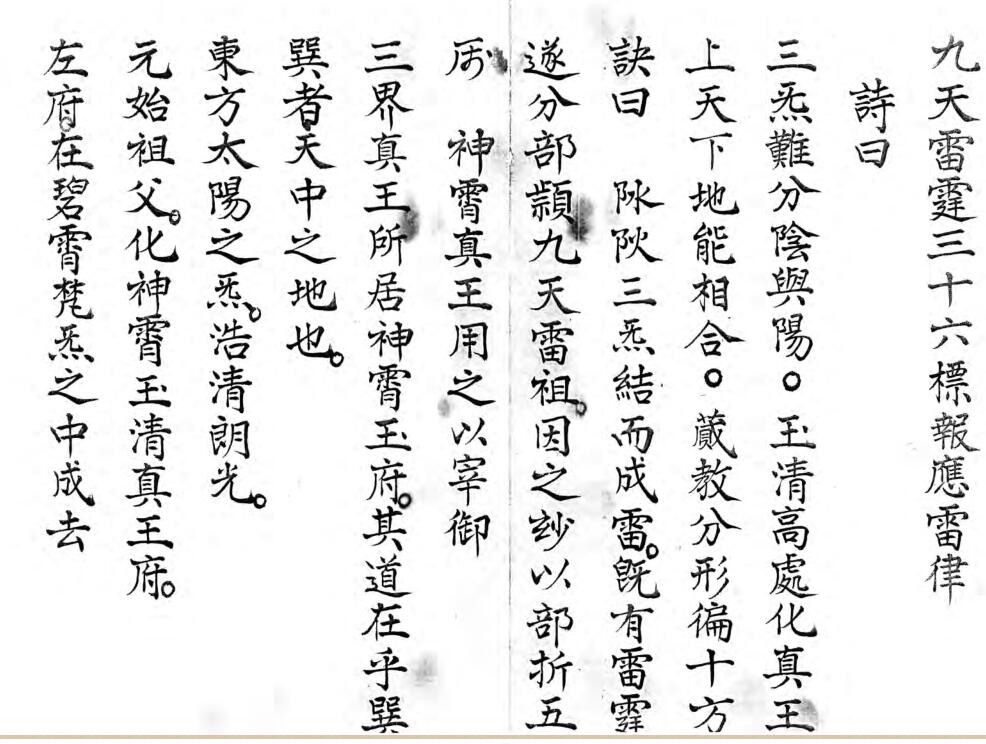 九天雷霆三十六標報應雷律
詩曰
三炁難分陰與陽。玉清高處化真王
上天下地能相合。蔵教分形徧十方
訣曰　阥阦三炁結而成雷。既有雷霆
遂分部𩔗九天雷祖。因之𥿋以部折五
属　神霄真王用之以宰御
三界真王所居神霄玉府。其道在乎巽
巽者天中之地也。
東方太陽之炁。浩清朗光。
元始祖父。化神霄玉清真王府。
左府在碧霄梵炁之中成去